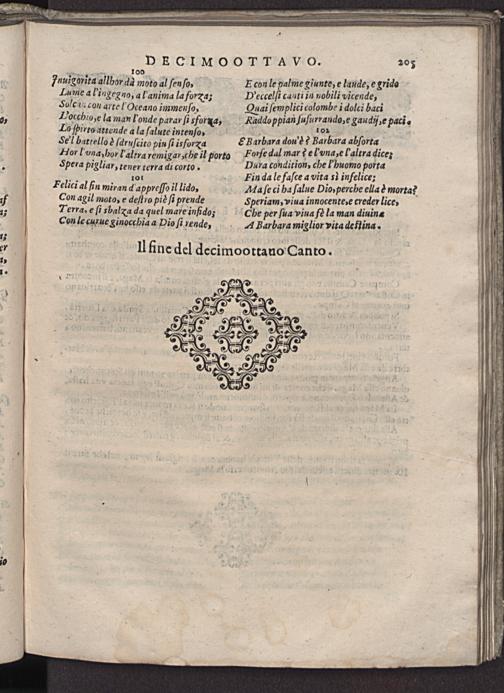 DECIMOOTTAVO. 205
100
Inuigorita allhor dà moto al senso,
Lume a l'ingegno, a l'anima la forza;
Solca con arte l'Oceano immenso,
L'occhio, e la man l'onde parar si sforza,
Lo spirto attende a la salute intenso,
Se'l battello è sdruscito piu si isforza
Hor l'una, hor l'altra remigar, che il porto
Spera pigliar, tener terra di corto.
101
Felici al fin miran d'appresso il lido,
Con agil moto, e destro piè si prende
Terra, e si sbalza da quel mare infido;
Con le curue ginocchia a Dio si rende,
E con le palme giunte, e laude, e grido
D'eccelsi canti in nobili vicende,
Quai semplici colombe i dolci baci
Raddoppian susurrando, e gaudij, e paci.
102
E Barbara dou'è? Barbara absorta
Forse dal mar? e l'vna, e l'altra dice;
Dura condition, che l'huomo porta
Fin da le fasce a vita sì infelice;
Ma se ci ha salue Dio, perche ella è morta?
Speriam, viua innocente, e creder lice,
Che per sua viua fè la man diuina
A Barbara miglior vita destina.
Il fine del decimoottauo Canto.